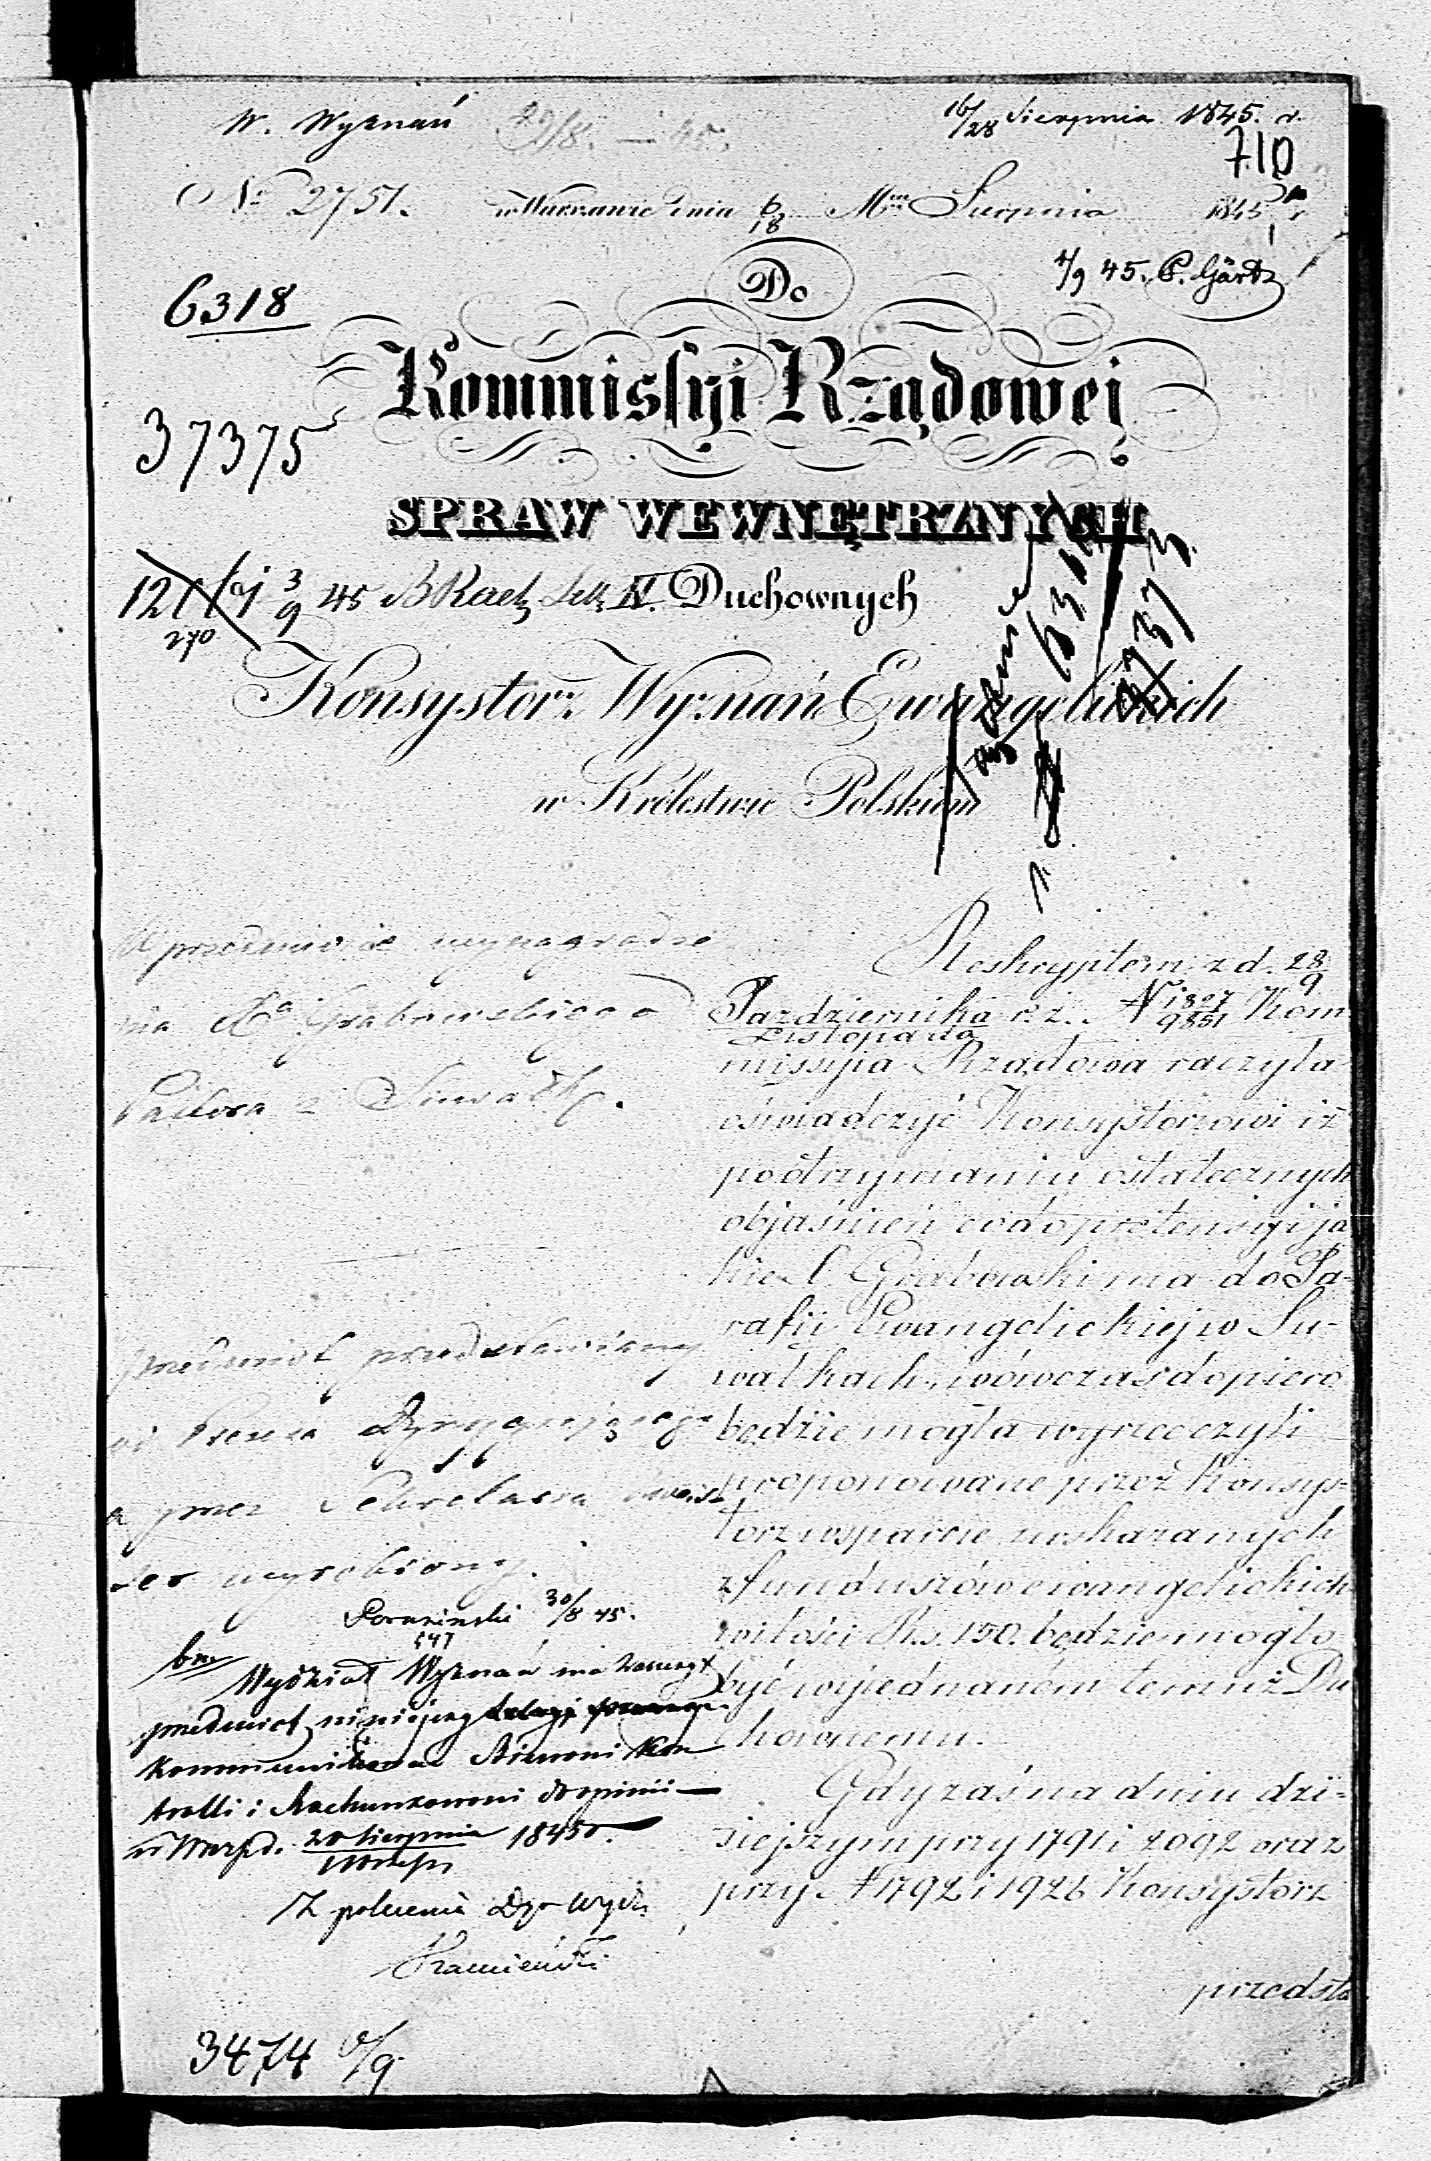 W. Wyznań 29/8. — 45.
16/28 Sierpnia 1845. r.
710
No 2751. w Warszawie dnia 6/18 Mca Sierpnia 1845 r
4/9 45. P. Gärtz
Do
6318
Kommissyi Rządowej
37375
SPRAW WEWNĘTRZNYCH
3/9 45 Duchownych
270
Konsystorz Wyznań Ewangelickich
w Królestwie Polskiém
W przedmiocie wynagrodze
nia Xa Grabowskiego
Pastora z Suwałk.
przedmiot przedstawiony
Dyrygującego
a przez Sekretarza
wyrobiony.
30/8 45.
Wydział Wyznań ma zaszczyt
przedmiot niniejszy
kommunikować Kon
trolli i Rachunkowości do opinii —
w Warsz d. 20 Sierpnia 1845 r.
1 Wrześn
Z polecenia Dyr Wydz
Kamieński
3474 6/9
Reskryptem z d. 28/9
Października/Listopada r. z. N 1827/9851 Kom
missyja Rządowa raczyła
oświadczyć Konsystorzowi iż
po otrzymaniu ostatecznych
objaśnień co do pretensyi ja
kie X. Grabowski ma do Pa-
rafii Ewangelickiej w Su-
wałkach, wówczas dopiero
będzie mogła wyrzec czyli
proponowane przez Konsys-
torz wsparcie z wskazanych
z funduszów ewangelickich
w ilości Rs. 150. będzie mogło
być wyjednaném temuż Du
chownemu.
Gdy zaś na dniu dzi-
siejszym przy 1791 i 2092 oraz
przy N 1792 i 1926 Konsystorz
przedsta